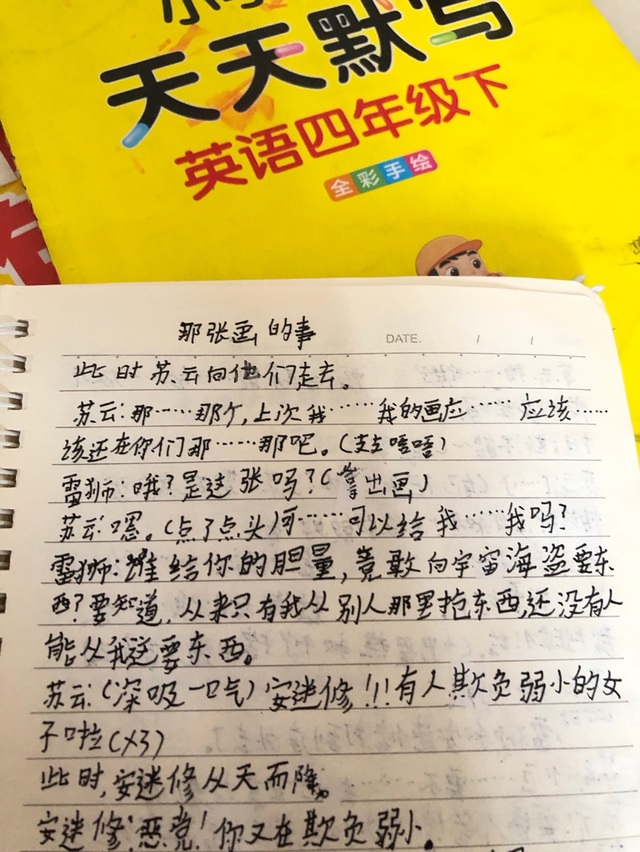 天天默写
英语四年级下
全彩手绘
那张画的事
DATE. / /
此时苏云向他们走去。
苏云:那……那个,上次我……我的画应……应该……
该还在你们那……那吧。(支支唔唔)
雷狮:哦?是这张吗?(拿出画)
苏云:嗯。(点了点头)可……可以给我……我吗?
雷狮:谁给你的胆量,竟敢向宇宙海盗要东
西?要知道,从来只有我从别人那里抢东西,还没有人
能从我这要东西。
苏云:(深吸一口气)安迷修!!!有人欺负弱小的女
子啦(X3)
此时,安迷修从天而降。
安迷修:恶党!你又在欺负弱小。